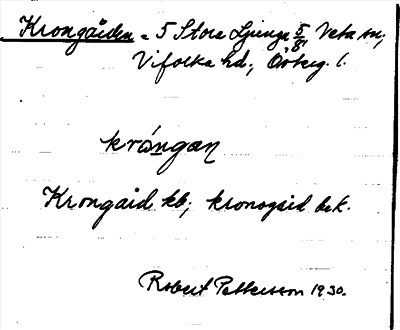 Krongården = 5 Stora Ljunga 5/8 Veta sn;
Vifolka hd; Österg. l.
krángan
Krongård kb; kronogård bek.
Robert Pettersson 1930.